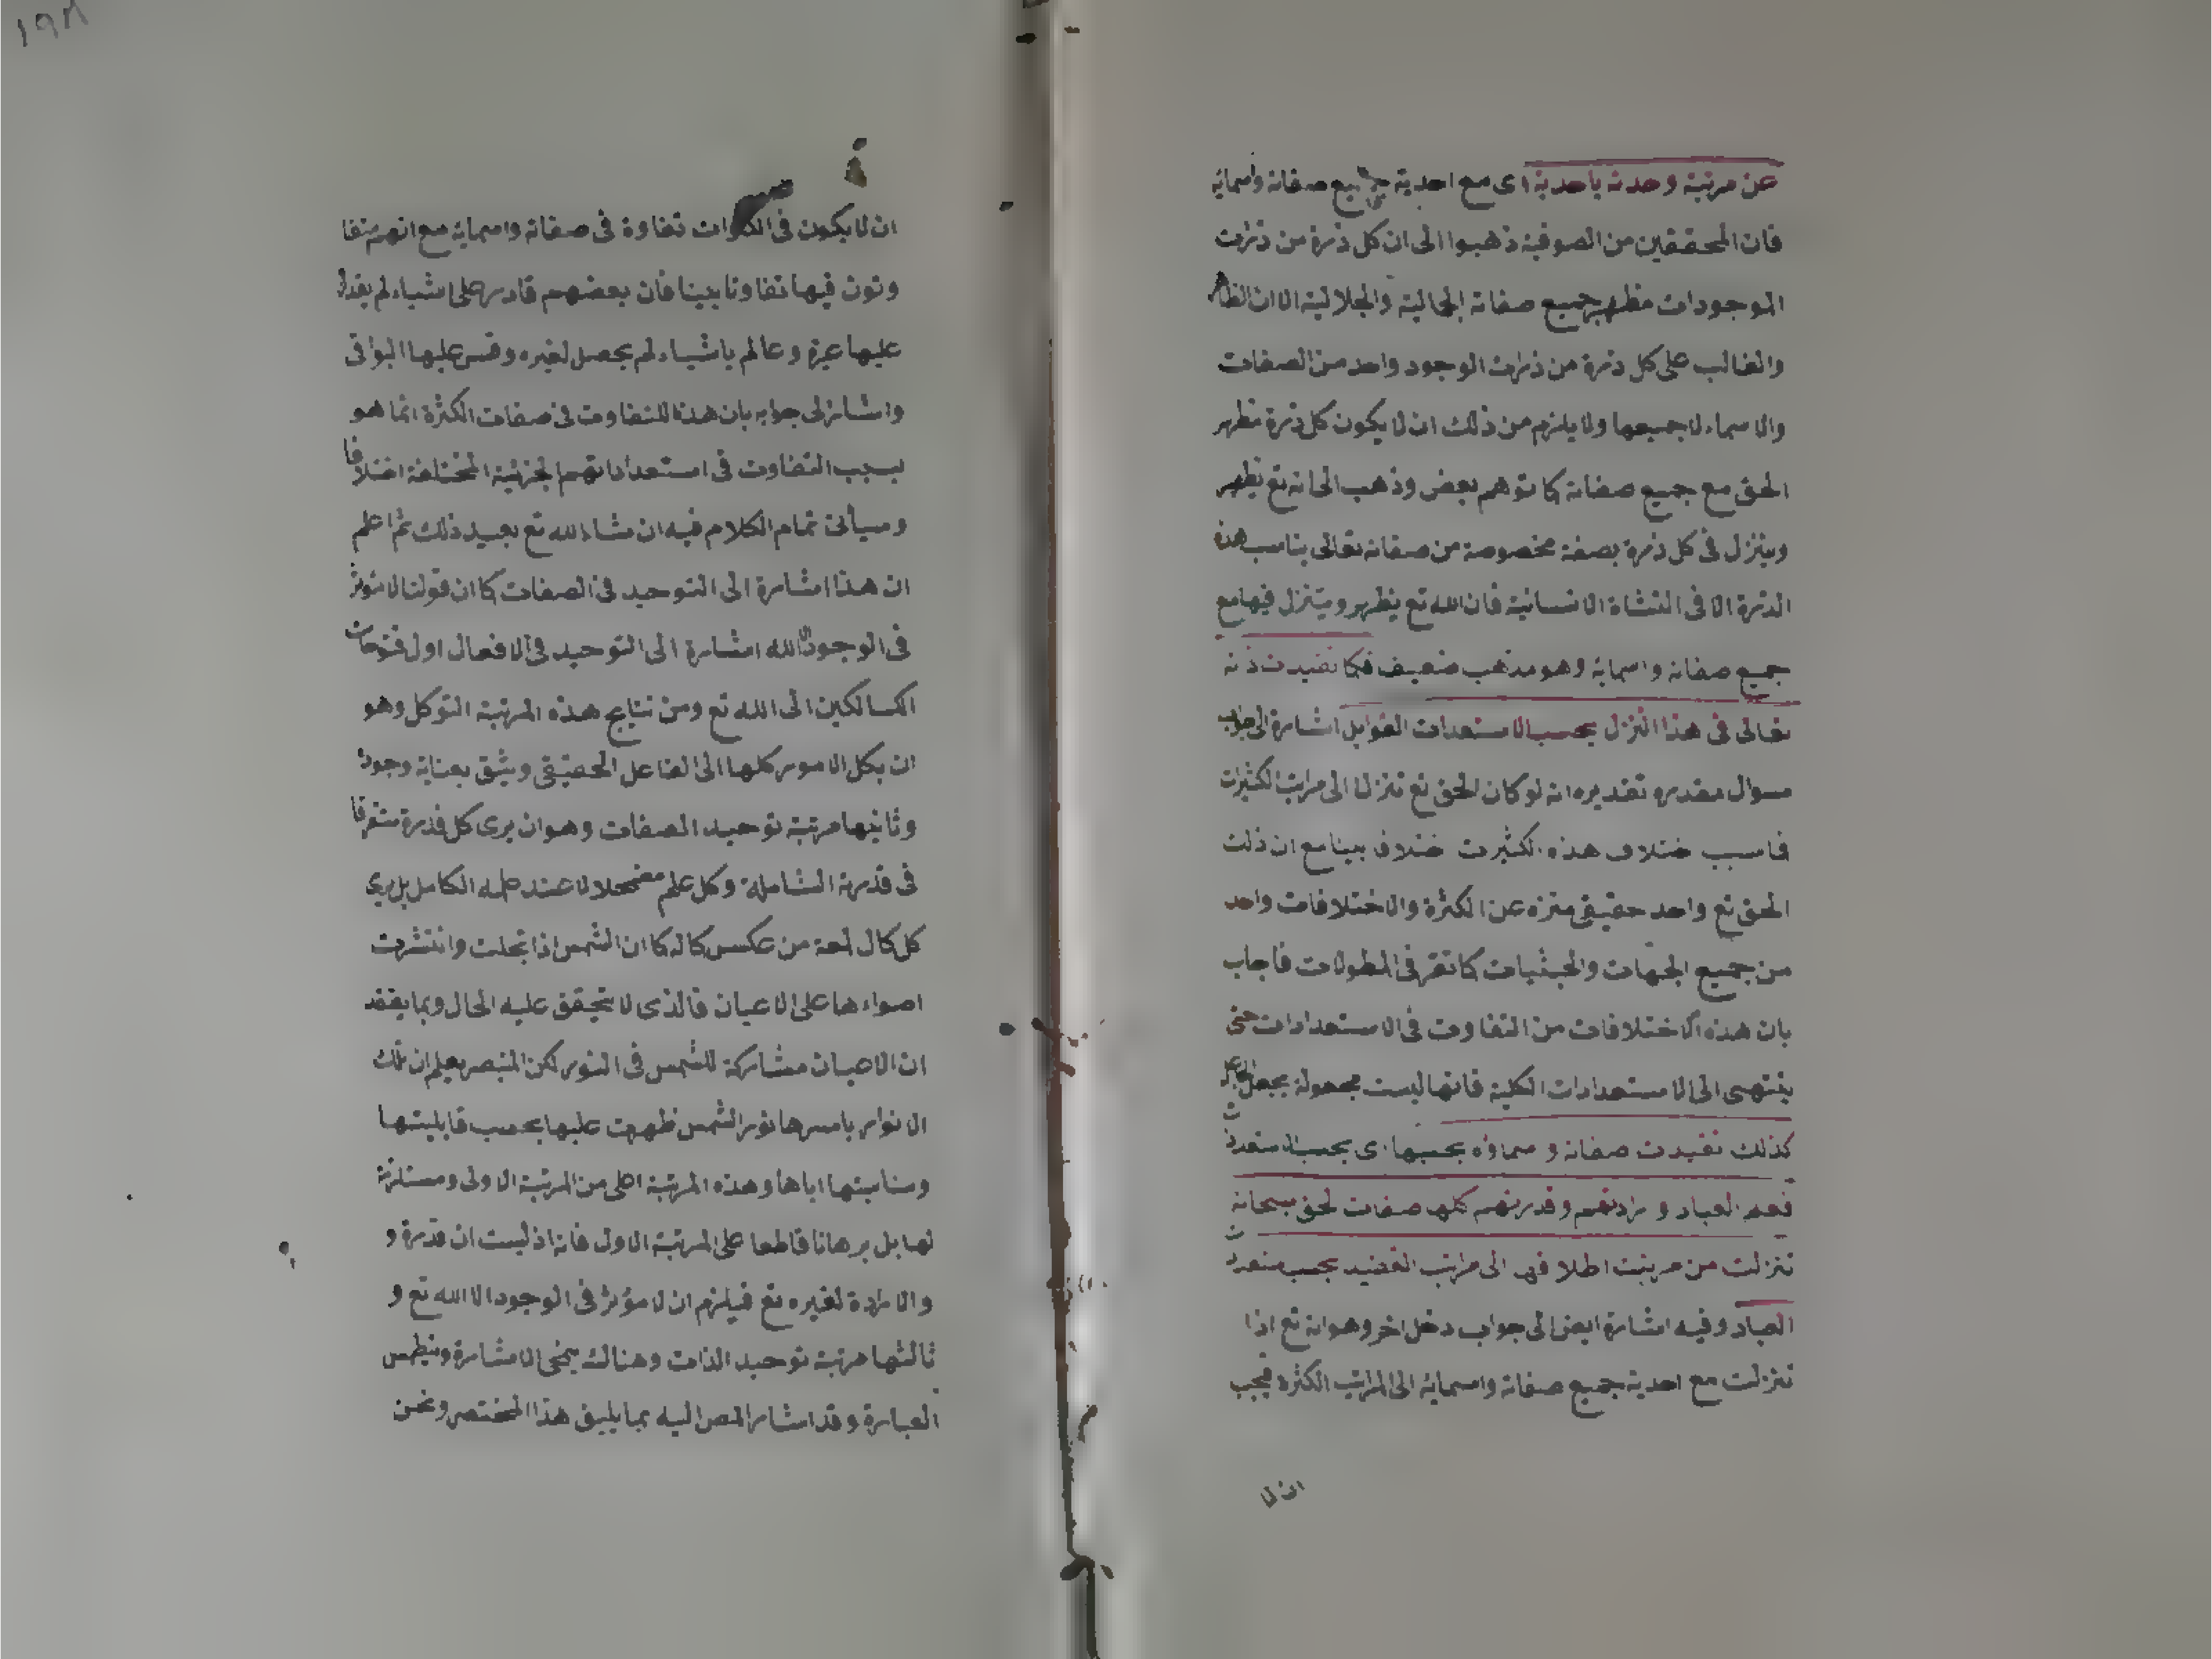 عن مرتبة وحدته باحدية اى مع احدية جميع صفاته واسمايه
فان المحققين من الصوفية ذهبوا الى ان كل ذرة من ذرات
الموجودات مظهر جميع صفاته الجمالية والجلالية الا ان الظاهر
والغالب على كل ذرة من ذرات الوجود واحد من الصفات
والاسماء لا جميعها ولا يلزم من ذلك ان لا يكون كل ذرة مظهر
الحق مع جميع صفاته كما توهم بعض وذهب الى انه تع يظهر
ويتنزل فى كل ذرة بصفة مخصوصة من صفاته تعالى يناسب هذه
الذرة الا فى النشاة الانسانية فان الله تع يظهر ويتنزل فيها مع
جميع صفاته واسمايه وهو مذهب ضعيف فكما تقيدت ذاته
تعالى فى هذا التنزل بحسب الاستعدات القوابل اشارة الى جواب
سوال مقدر تقديره انه لو كان الحق تع تنزل الى مراتب الكثرات
فما سبب ختلاف هذه الكثيرت ختلاف بينا مع ان ذات
الحق تع واحد حقيقى منزه عن الكثرة والاختلافات واحد
من جميع الجهات والحيثيات كما تقر فى المطولات فاجاب
بان هذه الاختلافات من التفاوت فى الاستعدادات حتى
ينتهى الى الاستعدادات الكلية فانها ليست مجعولة بجعل
كذلك تقيدت صفاته و سماؤه بحسبها اى بحسب الاستعدادت
فعلم العباد و رادتهم وقدرتهم كلها صفات لحق سبحانه
تنزلت من مرتبت اطلاقها الى مراتب التقييد بحسب ستعدادت
العباد وفيه اشارة ايضا الى جواب دخل اخر وهو انه تع اذا
تنزلت مع احدية جميع صفاته واسمايه الى المراتب الكثرة فيجب
ان لا
١٩٨
ان لا يكون فى الكثرات تفاوة فى صفاته واسمايه مع انهم يتفا
وتون فيها تفاوتا بينا فان بعضهم قادر على اشياء لم يقدر
عليها غيره وعالم باشياء لم يحصل لغيره وقس عليها البواقى
واشار الى جوابه بان هذا التفاوت فى صفات الكثرة انما هو
بسبب التفاوت فى استعداداتهم الجزئية المختلفة اختلافا
وسيأتى تمام الكلام فيه ان شاء الله تع بعيد ذلك ثم اعلم
ان هذا اشارة الى التوحيد فى الصفات كما ان قولنا لا مؤثر
فى الوجود الا الله اشارة الى التوحيد فى الافعال اول فتوحات
السالكين الى الله تع ومن نتايج هذه المرتبة التوكل وهو
ان يكل الامور كلها الى الفاعل الحقيقى ويثق بعناية وجوده
وثانيها مرتبة توحيد الصفات وهو ان يرى كل قدرة متغرقا
فى قدرته الشاملة وكل علم مضمحلا عند علمه الكامل بل يرى
كل كمال لمعة من عكس كماله كما ان الشمس اذا تجلت وانتشرت
اضواءها على الاعيان فالذى لا يتحقق عليه الحال وبما يعتقد
ان الاعيان مشاركة للشمس فى النور لكن المتبصر يعلم ان تلك
الانوار باسرها نور الشمس ظهرت عليها بحسب قابليتها
ومناسبتها اياها وهذه المرتبة اعلى من المرتبة الاولى ومستلزمة
لها بل برهانا قاطعا على المرتبة الاول فانه اذ ليست ان قدرة و
والارادة لغيره تع فيلزم ان لا مؤثر فى الوجود الا الله تع و
ثالثها مرتبة توحيد الذات وهنالك يمحى الاشارة وينطمس
العبارة وقد اشار المص اليه بما يليق هذا المختصر ونحن